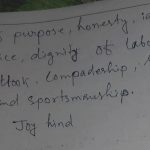 purpose, honesty,
dignity of labo
compadeship,
and sportsmanship.
Joy hind